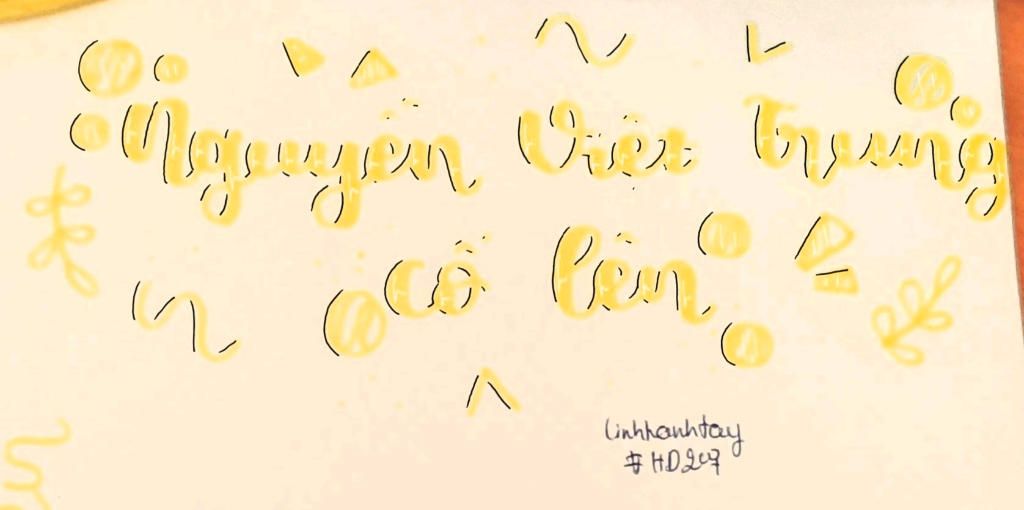 Nguyễn Việt Trung
cố lên
linhhanhtay
#HD207